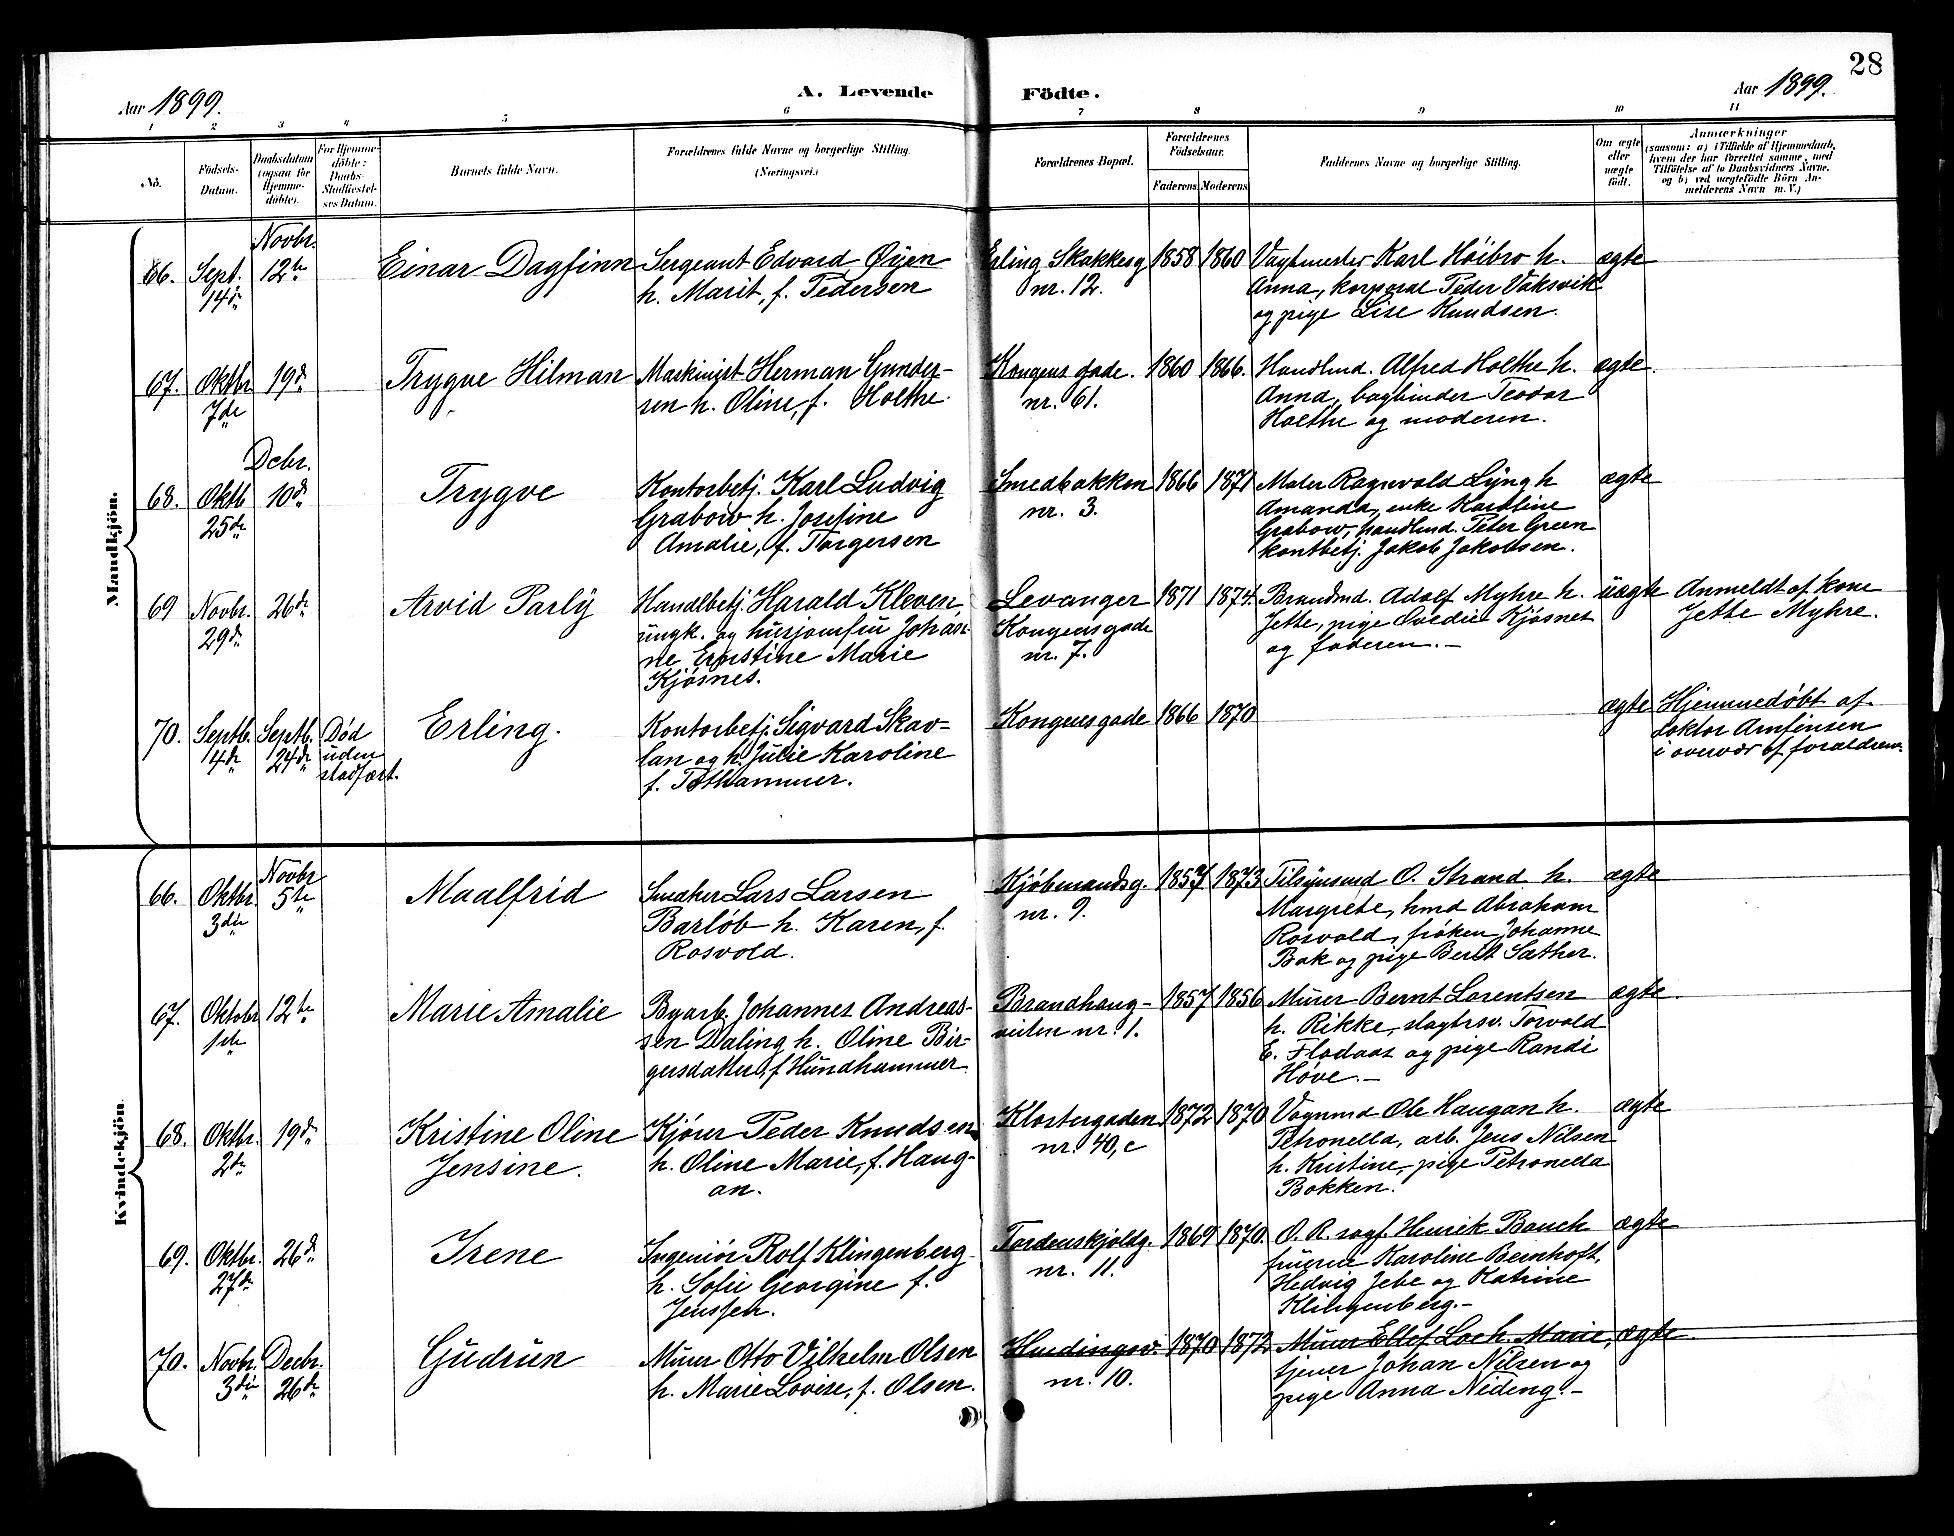 28
Aar 1899.
A. Levende Födte.
Aar 1899.
1 2 3 4 5 6 7 8 9 10 11
No.
Födsels-
Datum.
Daabsdatum
(ogsaa for
Hjemme-
döbte).
For Hjemme-
döbte:
Daabs-
Stadfæstel-
ses Datum.
Barnets fulde Navn.
Forældrenes fulde Navne og borgerlige Stilling.
(Næringsvei.)
Forældrenes Bopæl.
Forældrenes
Födselsaar.
Faderens. Moderens.
Faddernes Navne og borgerlige Stilling.
Om ægte
eller
uægte
födt.
Anmærkninger
(saasom: a) i Tilfælde af Hjemmedaab,
hvem der har forrettet samme, med
Tilföielse af to Daabsvidners Navne.
og b) ved uægtefödte Börn An-
melderens Navn m. V.)
Mandkjön.
66. Sept. 14de
Novbr. 12te
Einar Dagfinn
Sergeant Edvard Øyen
h. Marit, f. Pedersen
Erling Skakkesg
nr. 12.
1858 1860
Vagtmester Karl Höibro h.
Anna, korporal Peder Vaksvik
og pige Lise Knudsen.
ægte
67. Oktbr. 7de
19de
Trygve Hilman
Maskinist Herman Gunder-
sen h. Oline, f. Holthe.
Kongens gade.
nr. 61.
1860 1866.
Handlmd. Alfred Holthe h.
Anna, bogbinder Teodor
Holthe og moderen.
ægte.
68. Oktb 25de
Debr. 10de
Trygve
Kontorbetj. Karl Ludvig
Grabow h. Josefine
Amalie, f. Torgersen
Smedbakken
nr. 3.
1866 1871
Maler Ragnvald Lyng h
Amanda, enke Karoline
Grabow, handlmd. Peter Green
kontbetj. Jakob Jakobsen.
ægte
69 Novbr. 29de
26de
Arvid Parly
Handlbetj. Harald Kleven,
ungk. og husjomfru Johan-
ne Ernstine Marie
Kjøsnes.
Levanger
Kongensgade
nr. 7.
1871 1874.
Brandmd. Adolf Myhre h.
Jette, pige Ovedie Kjøsnes
og faderen.-
uægte
Anmeldt af kone
Jette Myhre.
70. Septb. 14de
Septb. 24de
Död
uden
stadfæst.
Erling.
Kontorbetj. Sigvard Skav-
lan og h. Julie Karoline
f. Tothammer.
Kongensgade
1866 1870
ægte
Hjemmedöbt af
doktor Arnfinsen
i overvær af forældrene.
Kvindekjön.
66. Oktbr. 3die
Novbr 5te
Maalfrid
Snedker Lars Larsen
Barlöb h. Karen, f.
Rosvold.
Kjöbmandsg.
nr. 9.
1857 1873
Tilsynsmd O. Strand h.
Margrete, hmd Abraham
Rosvold, fröken Johanne
Bak og pige Berit Sæther.
ægte
67. Oktobr 1ste
12te
Marie Amalie
Byarb. Johannes Andreas-
sen Daling h. Oline Bir-
gersdatter, f Hundhammer.
Brandhaug-
veiten nr. 1.
1857 1856
Murer Bernt Lorentsen
h. Rikke, slagtersv. Torvald
E. Flodaas og pige Randi
Höve.-
ægte.
68. Oktbr. 2de
19de
Kristine Oline
Jensine.
Kjörer Peder Knudsen
h. Oline Marie, f. Haug-
an.
Klostergaden
nr. 40, c
1872 1870
Vognmd Ole Haugan h.
Petronella, arb. Jens Nilsen
h. Kristine, pige Petronella
Bakken.
ægte
69. Oktbr. 27de
26de
Irene
Ingeniör Rolf Klingenberg
h. Sofie Georgine f.
Jenssen.
Tordenskjoldg.
nr. 11.
1869 1870.
O. R. sagf. Henrik Bauck
fruerne Karoline Beenhoft,
Hedvig Jebe og Katrine
Klingenberg.-
ægte
70. Novbr. 3die
Decbr. 26de
Gudrun
Murer Otto Vilhelm Olsen
h. Marie Lovise, f. Olsen.
nr. 10.
1870 1872
Murer Ellef Loe h. Marie,
tjener Johan Nilsen og
pige Anna Nideng.-
ægte.